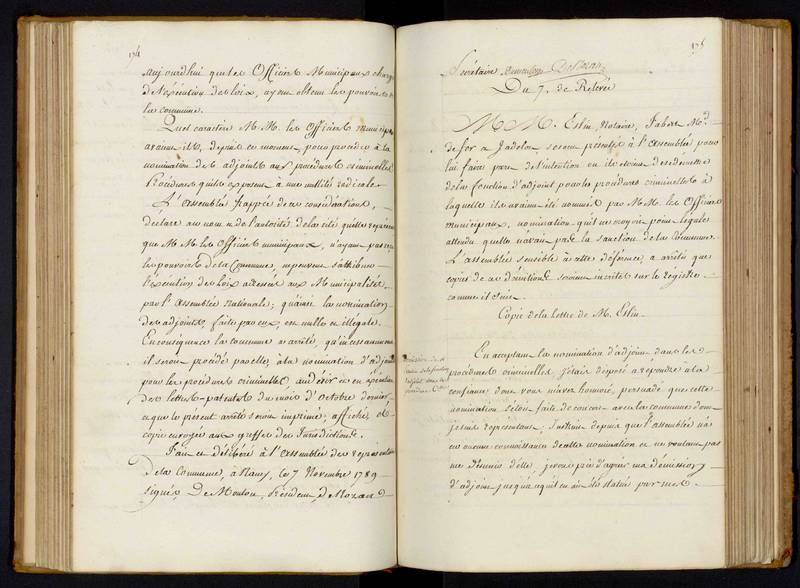 174
aujourdhui que les Officiers Municipaux chargés
de l'exécution des loix, ayent obtenu les pouvoirs de
la commune.
Quel caractère M.M. les Officiers municip
avaient ils, depuis ce moment, pour procéder à la
nomination des adjoints aux procédures criminelles
Procédures qu'ils exposent à une nullité radicale
L'assemblée frappée de ces considérations,
déclare au nom de l'autorité de la cité quelle représente
que M.M. les Officiers municipaux, n'ayans pas reçu
les pouvoirs de la Commune, ne peuvent s'attribuer
l'exécution des loix adressées aux Municipalités
par l'Assemblée nationale; qu'ainsi la nomination
des adjoints, faite par eux, est nulle et illégale.
En conséquence la commune a arrêté, qu'incessamment
il seroit procédé par elle, à la nomination d'adjoints
pour les procédures criminelles, au désir et en exécution
des lettres-patentes du mois d'Octobre dernier,
et que le présent arrêté seroit imprimé, affiché, et
copie envoyée aux greffes des Jurisdictions.
Fait et délibéré à l'assemblée des représentans
de la Commune, à Nancy, le 7 Novembre 1789
signés, De Moulon, Président, de Mozard
175
Secrétaire
Du 7. de Relevée
M.M. Eslin, Notaire, Jabert M.d
de fer et Jadelot se sont présentés à l'assemblée pour
lui faire part de l'intention où ils étoient de se démettre
de la fonction d'adjoint pour les procédures criminelles à
laquelle ils avaient été nommés par M.M. les Officiers
municipaux, nomination qu'ils ne croyoient point légale
attendu quelle n'avait pas la sanction de la Commune.
L'assemblée sensible à cette déférence, a arrêté que
copies de ces démissions seroient inscrites sur le registre
comme il suit.
Copie de la lettre de M. Eslin.
En acceptant la nomination d'adjoint dans les
procédures criminelles, j'étais disposé à répondre à la
confiance dont vous m'avez honoré, persuadé que cette
nomination s'étoit faite de concert avec la commune dont
je suis représentant, instruit depuis que l'assemblée n'a
eu aucune connaissance de cette nomination et ne voulant pas
me désunir d'elle, je vous prie d'agréer ma démission
d'adjoint jusqu'à ce qu'il en ait été statué par mes